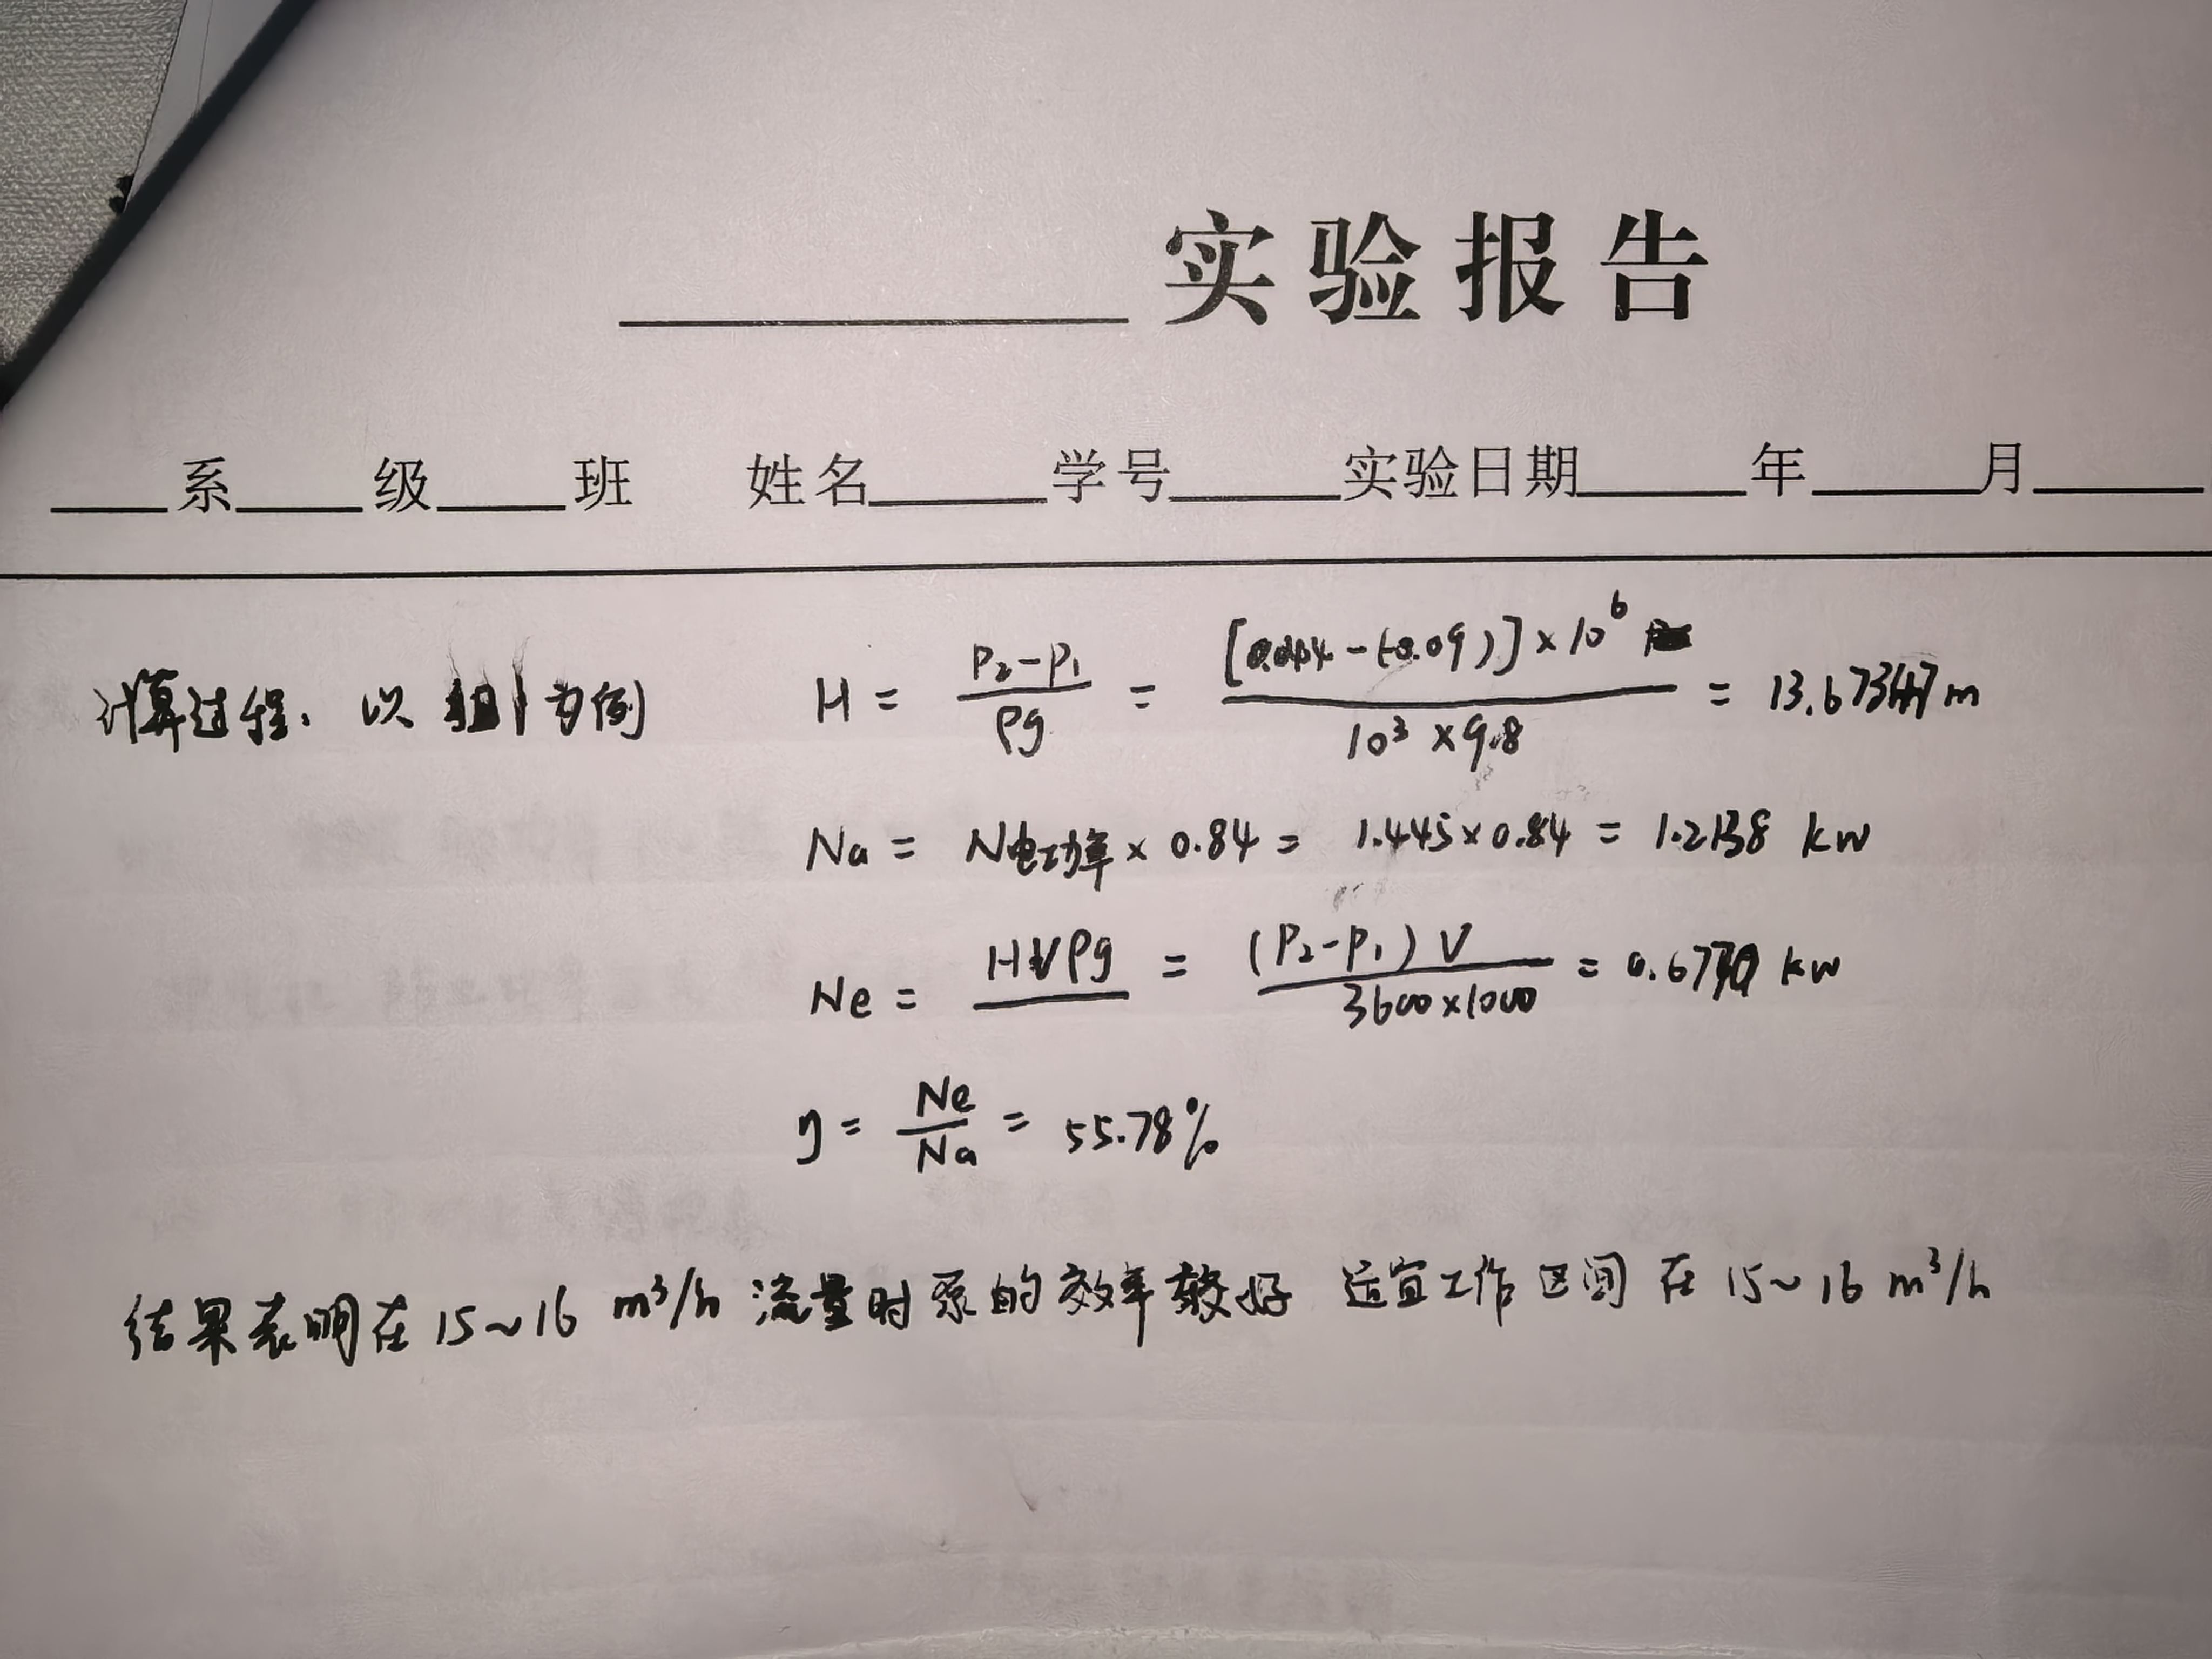 实验报告
系 级 班 姓名 学号 实验日期 年 月
计算过程. 以组1为例 H = P₂-P₁/ρg = [0.044-(-0.09)]×10⁶/10³×9.8 = 13.67347m
Na = N电功率 × 0.84 = 1.445×0.84 = 1.2138 kw
Ne = HVρg = (P₂-P₁)V/3600×1000 = kw
η = Ne/Na = 55.78%
结果表明在15~16 m³/h 流量时泵的效率较好 适宜工作区间在15~16 m³/h